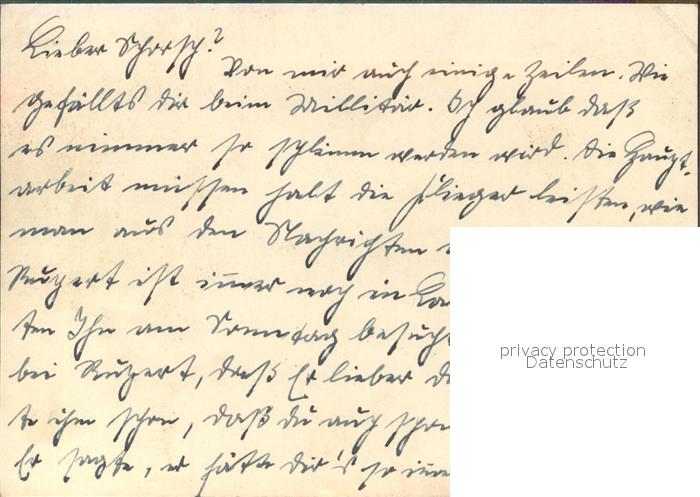 Lieber Schorsch!
Von mir auch einige Zeilen. Wie
gefällts dir beim Millitär. Ich glaub daß
es nimmer so schlimm werden wird. Die Haupt-
arbeit müssen halt die Flieger leisten, wie
man aus den Nachrichten
Rupert ist immer noch in
ten Ihn am Sonntag besucht
bei Rupert, daß Er lieber
te ihm schon, daß du auch schon
Er sagte, er hätte dir's so
privacy protection
Datenschutz